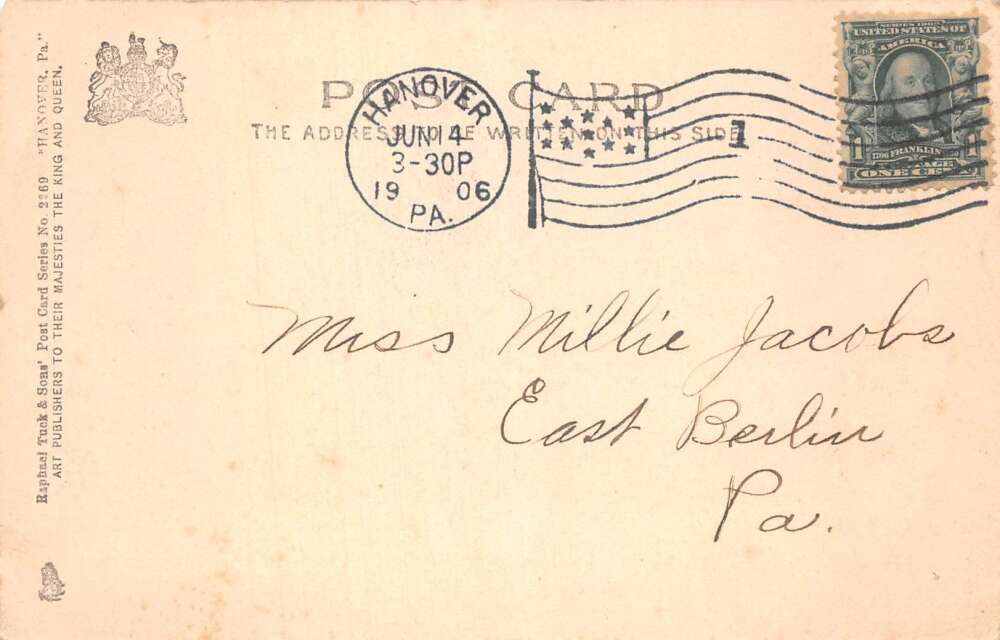 Raphael Tuck & Sons' Post Card Series No. 2169 "HANOVER, Pa."
ART PUBLISHERS TO THEIR MAJESTIES THE KING AND QUEEN.
POST CARD
THE ADDRESS TO BE WRITTEN ON THIS SIDE
HANOVER
JUN 14
3-30P
19 06
PA.
1
SERIES 1902
UNITED STATES OF
AMERICA
1706 FRANKLIN
1 POSTAGE 1
ONE CENT
Miss Millie Jacobs
East Berlin
Pa.